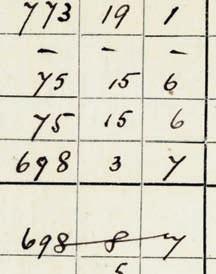 773 19 1
– – –
75 15 6
75 15 6
698 3 7
698 8 7
5